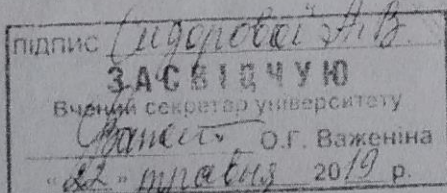 ПІДПИС Сидорової А.В.
ЗАСВІДЧУЮ
Вчений секретар університету
О.Г. Важеніна
"22" травня 2019 р.